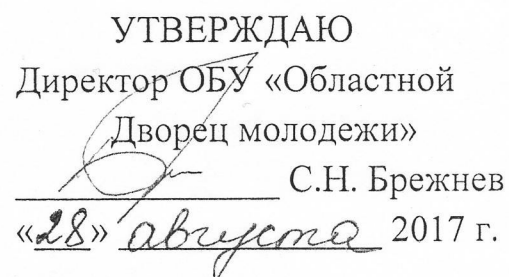 УТВЕРЖДАЮ
Директор ОБУ «Областной
Дворец молодежи»
С.Н. Брежнев
«28» августа 2017 г.